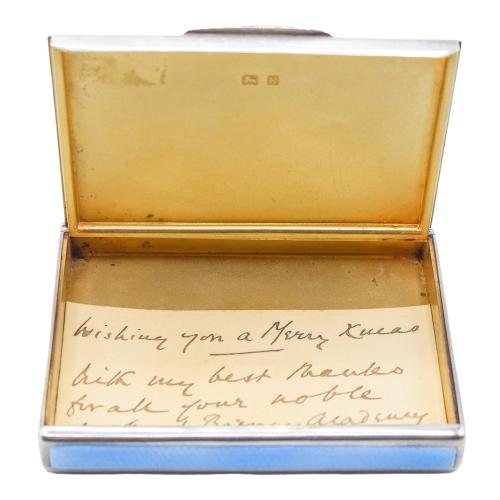 Wishing you a Merry Xmas
With my best thanks
for all your noble
Academy